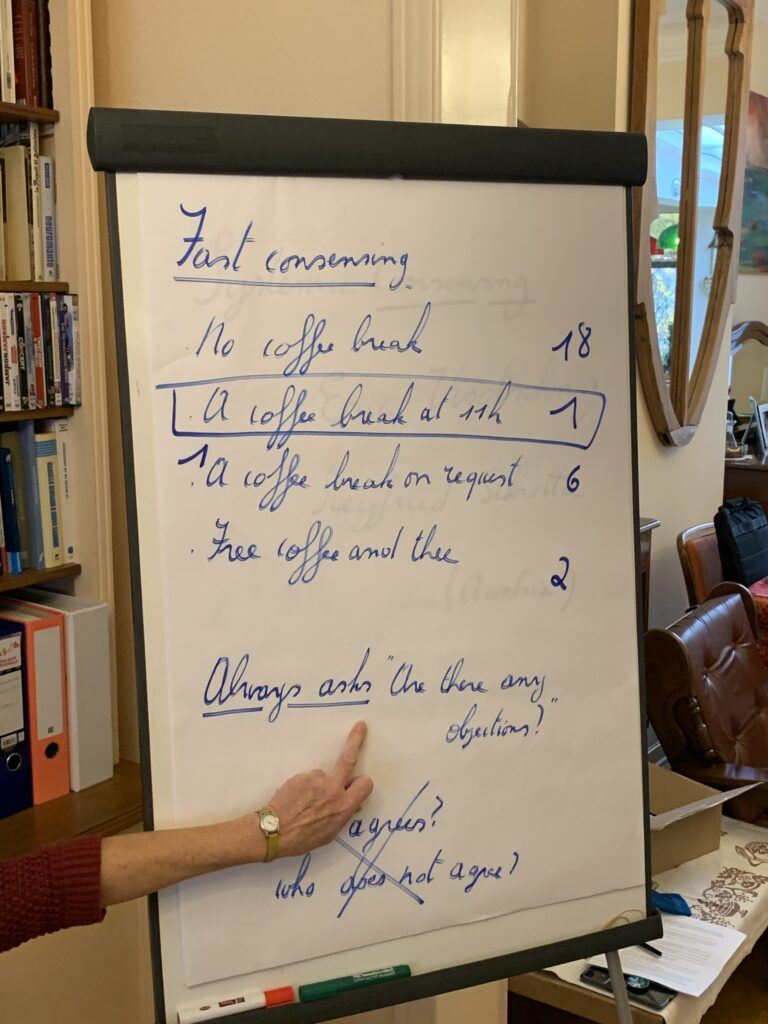 Fast consensing
. No coffee break 18
. A coffee break at 11h 1
1 . A coffee break on request 6
. Free coffee and thee
2
Always asks "Are there any
objections?"
agrees?
who does not agree?